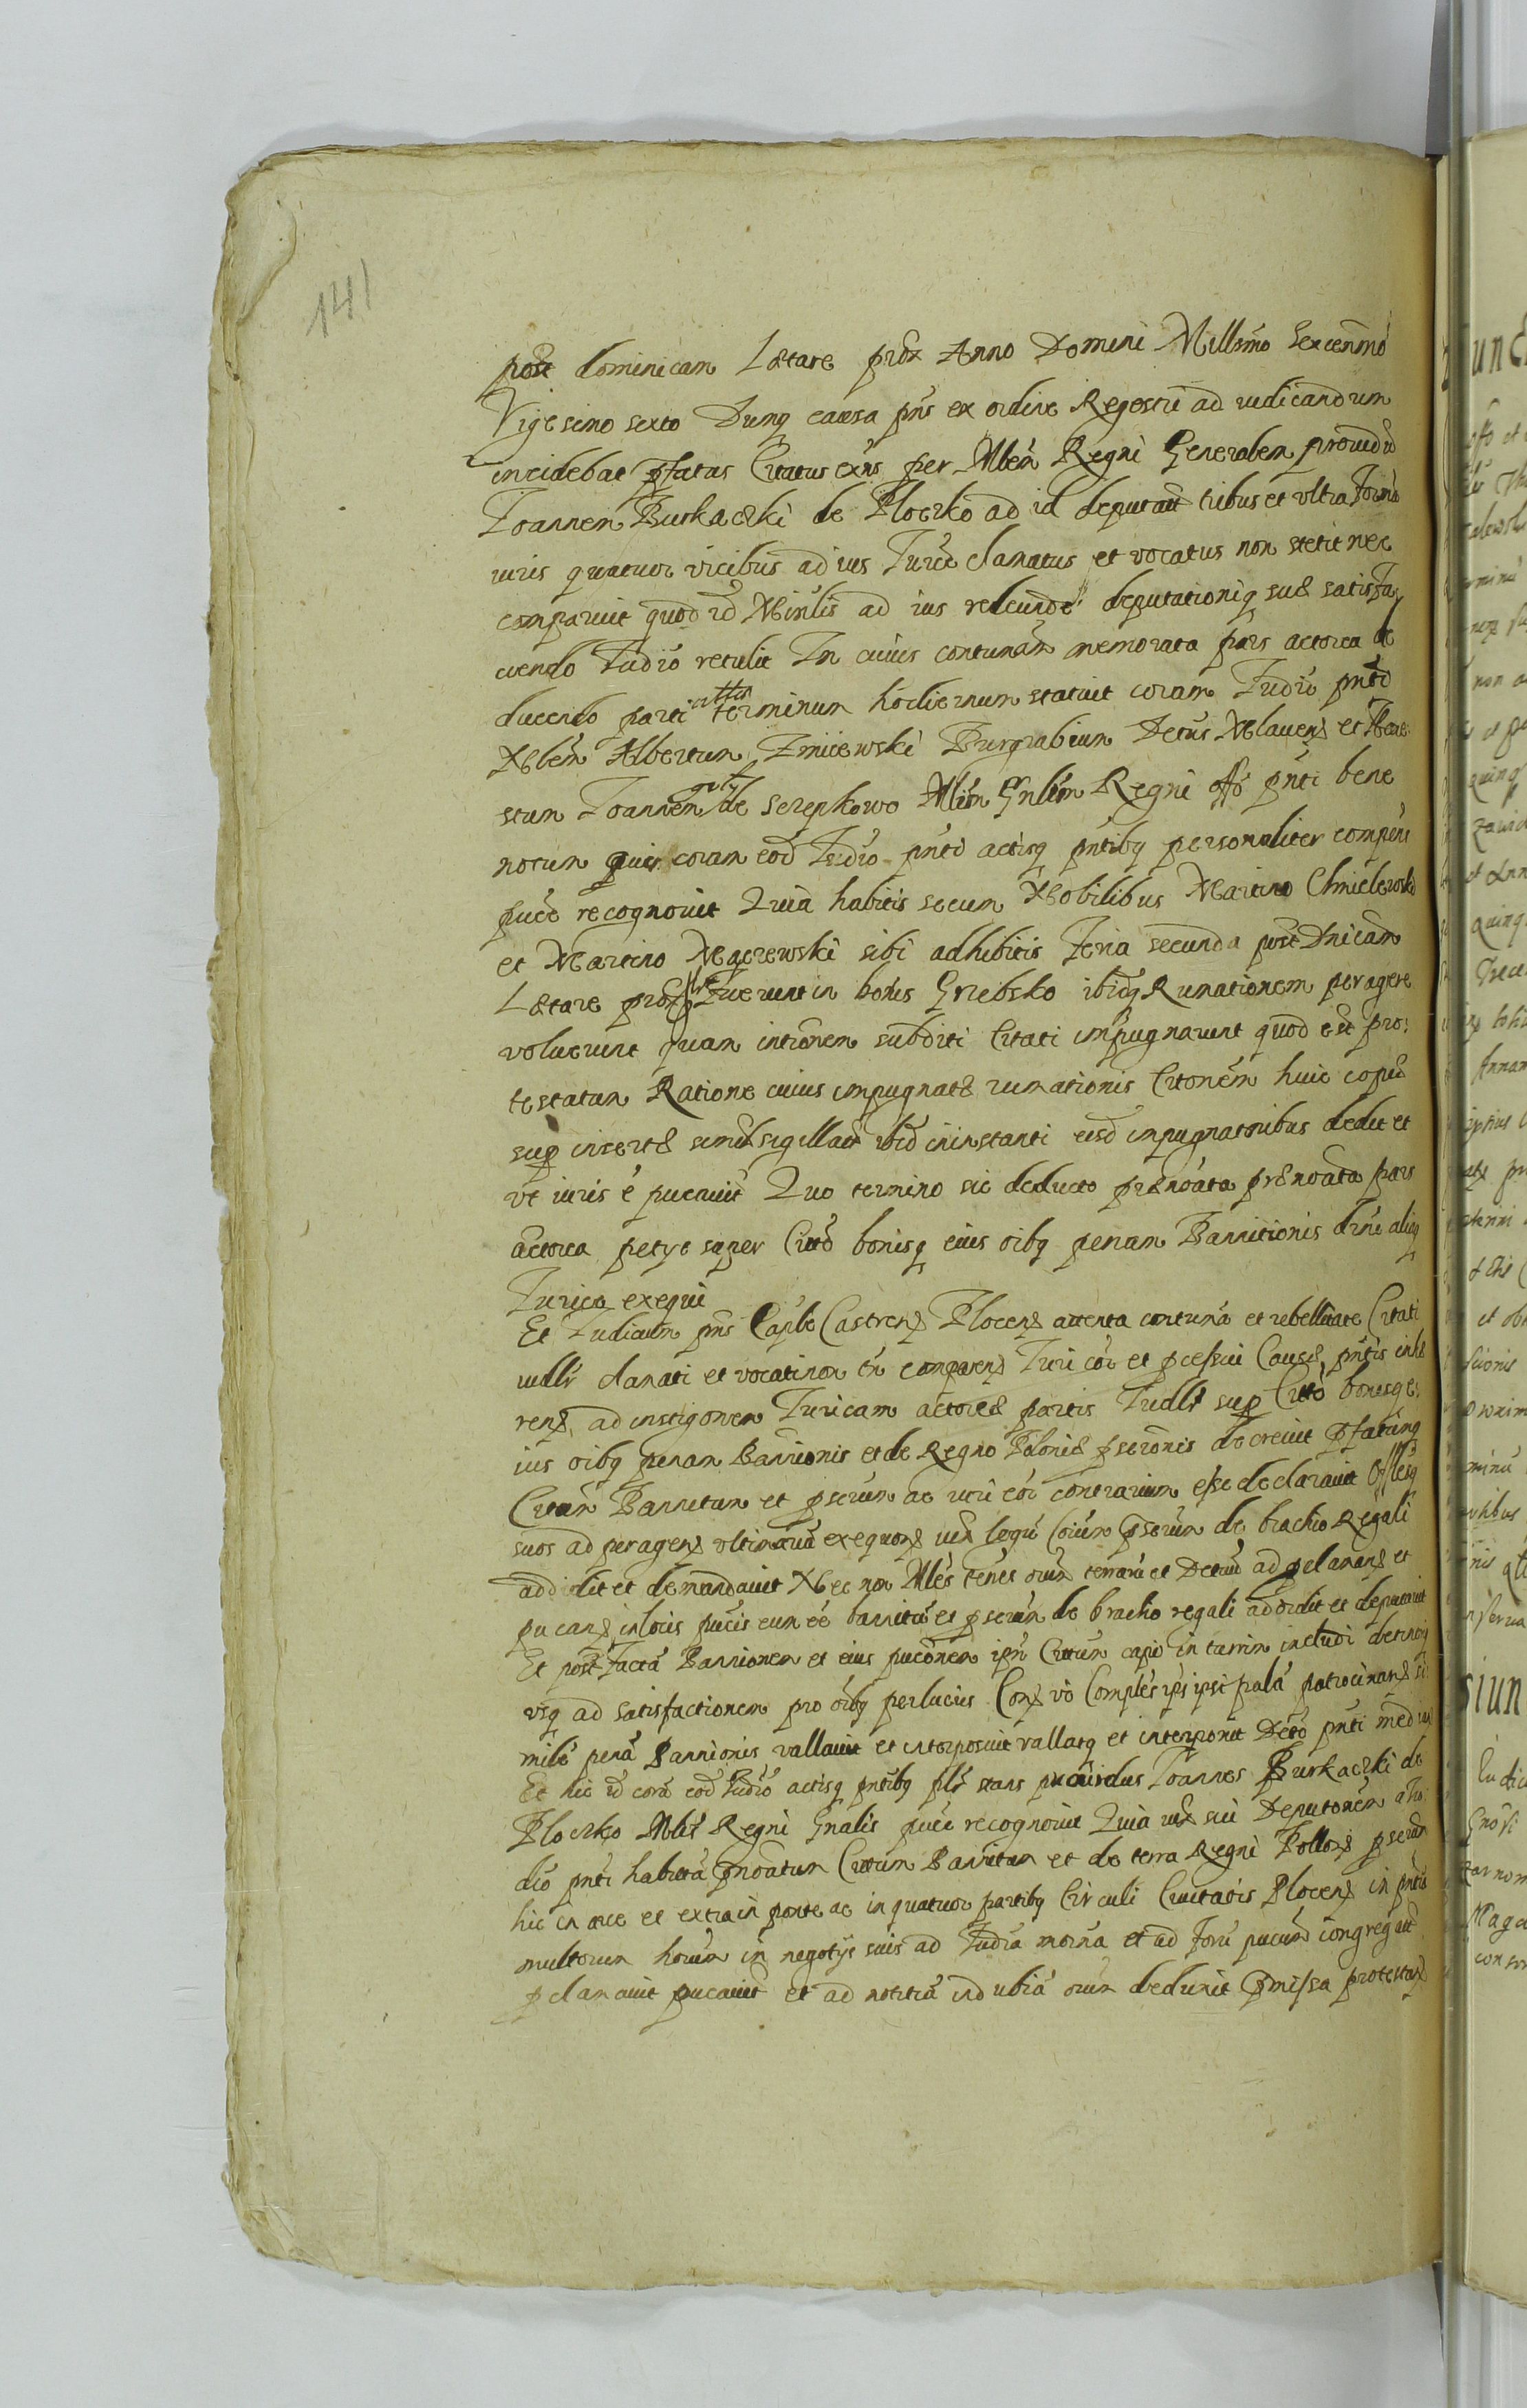 141
post dominicam Lætare prox Anno Domini Millsmo Sexcenmo
Vigesimo sexto Dumq causa pns ex ordine Regestri ad iudicandum
incidebat pfatus Citatus exns per Mlem Regni Generalem prouidu
Joannem Burkaczki de Ploczko ad id deputatu tribus et vltra formā
iuris quatuor vicibus ad ius Jurce clamatus et vocatus non stetit nec
comparuit quod id Minlis ad ius redeundo deputationiq suæ satisfa
ciendo Judio retulit In cuius contumam memorata pars actorea de
ducendo parti citta terminum hodiernum statuit coram Judio pntd
Nblem Albertum Zmiiewski Burgrabium Detus Mlauens et
stum Joannem de Serepkowo Mlem Gnlem Regni offo pnti bene
notum qui coram eod Judio pntd actisq pntibq personaliter compns
puce recognouit Quia habitis secum Nobilibus Martino Chmielewski
et Martino sibi adhibitis Feria secunda post Dnicam
Lætare prox fuerunt in bonis Grzebsko ibidq Rumationem peragere
voluerunt quam intionem subditi Citati impugnarunt quod est pro:
testatum Ratione cuius impugnatæ rumationis Citonem huic copiæ
sup insertæ simul sigillatu ibid in instanti eisd impugnatoribus dedit et
vt iuris e pucauit Quo termino sic deducto prænoata prænoata pars
actorea petyt super Cittd bonisq eius oibq penam Bannitionis
Jurica exequi
Et Judicium pns Caplle Castrens Plocens attenta contuma et rebellitate Citati
iudllr clamati et vocati non tn comparens Juri coi et pcessui Causæ pntis inhæ
rens ad instigonem Juricam actoreæ partis Judllr sup Citto bonisqe:
ius oibq penam Bannionis et de Regno Poloniæ pscronis decreuit pfatumq
Citum Bannitum et pscrum ac iuri coi contrarium esse declarauit
suos ad peragens vltimam exequons iux legu Coium pscrum de brachio Regali
addidit et demandauit Nec non Mles tenes oium terraru et Detuu ad pclamans et
pucans in locis pucis eum ee bannitu et pscrum de brachio regali addidit et deputauit
Et post factā Bannionem et eius puconem ipm Citum capi in turrim includi detinriq
vsq ad satisfactionem pro oibq perlucius Cons vo Comples ips ipsi palā patrocinans si
mile penā Bannionis vallauit et interposuit vallatq et interponit Deto pnti mediante
Et hic id corā eod Judio actisq pntibq plr stans prouidus Joannes Burkaczki de
Ploczko Mlis Regni Gnalis puce recognouit Quia iux sui Deputonem a Ju
dio pnti habitā pnoatum Citum Bannitum et de terra Regni Polloniæ pscrum
hic in arce et extra in ponte ac in quatuor partibq Circuli Ciuitatis Plocens in pntia
multorum hoium in negotys suis ad Judia morna et ad foru pucum congregatu
pclamauit pucauit et ad notitiā indubiā oium deduxit pmissa protestans